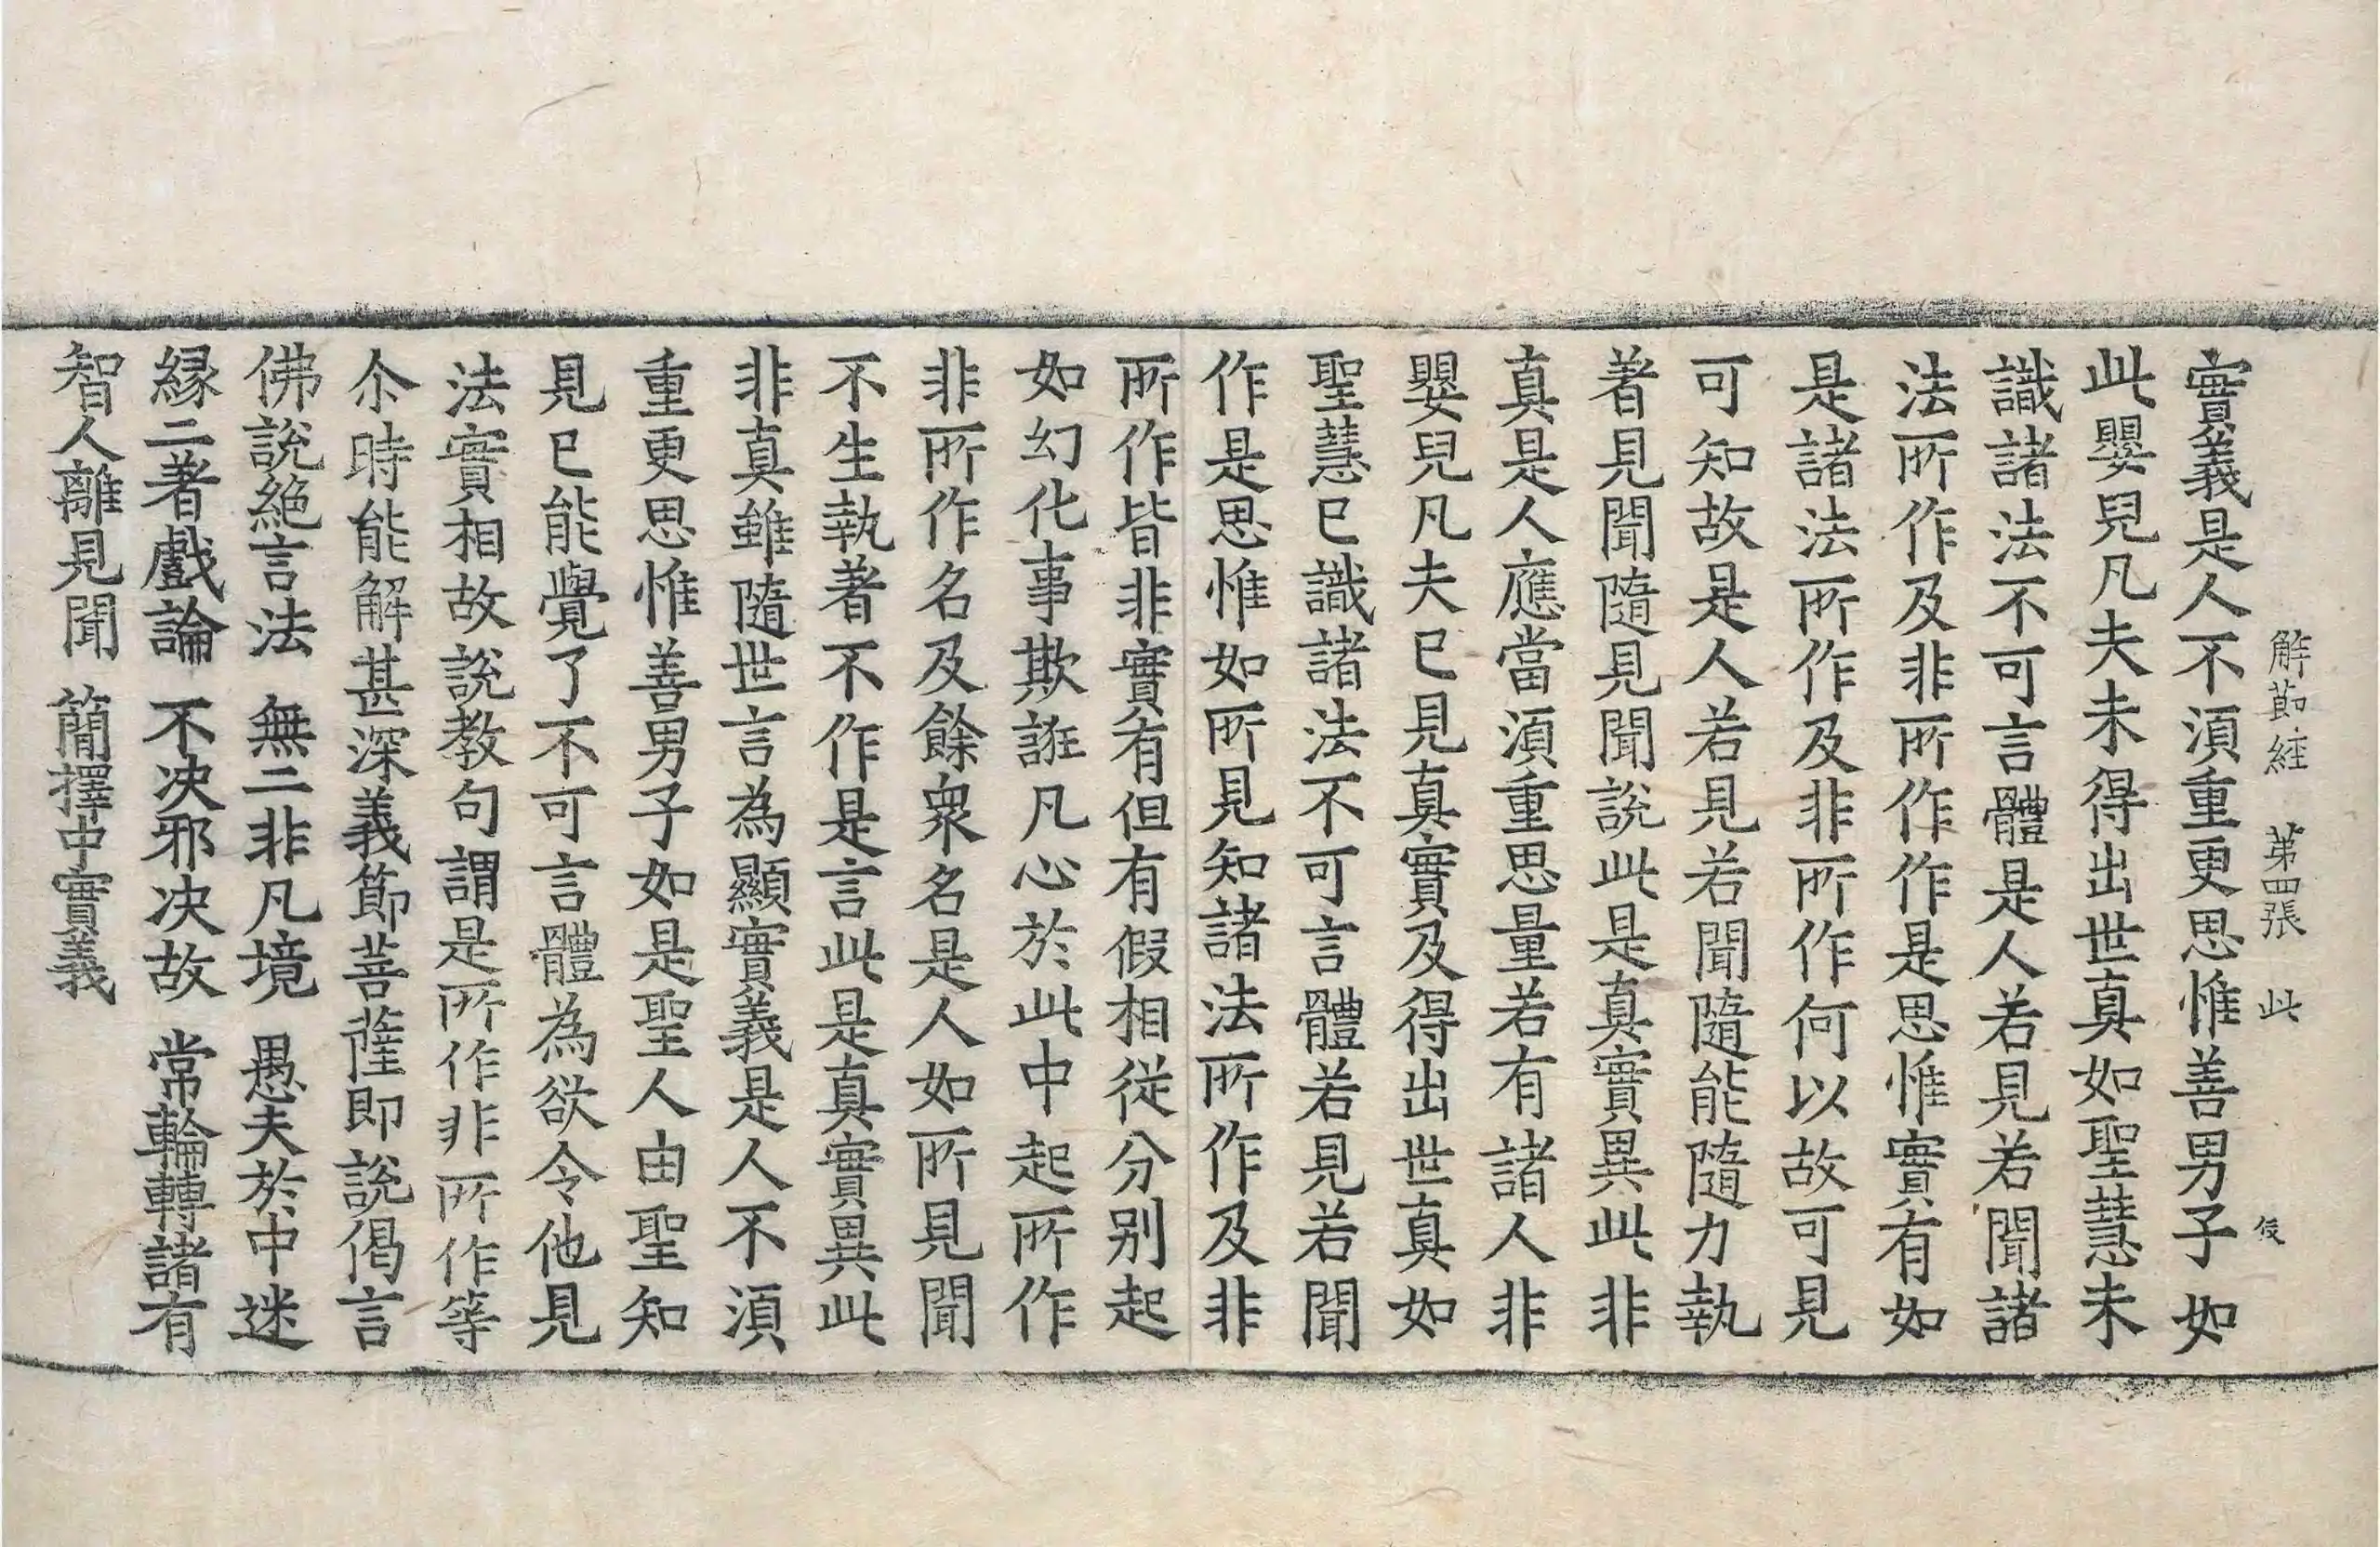 解莭経 苐四張 此 㑴
實義是人不湏重更思惟善男子如
此嬰兒凡夫未得出世真如聖慧未
識諸法不可言體是人若見若聞諸
法所作及非所作作是思惟實有如
是諸法所作及非所作何以故可見
可知故是人若見若聞隨能隨力執
著見聞隨見聞說此是真實異此非
真是人應當湏重思量若有諸人非
嬰兒凡夫已見真實及得出世真如
聖慧已識諸法不可言體若見若聞
作是思惟如所見知諸法所作及非
所作皆非實有但有假相從分別起
如幻化事欺誑凡心於此中起所作
非所作名及餘衆名是人如所見聞
不生執著不作是言此是真實異此
非真雖隨世言為顯實義是人不湏
重更思惟善男子如是聖人由聖知
見已能覺了不可言體為欲令他見
法實相故說教句謂是所作非所作等
尒時能解甚深義節菩薩即說偈言
佛說絶言法 無二非凡境 愚夫於中迷
縁二著戲論 不决邪决故 常輪轉諸有
智人離見聞 簡擇中實義